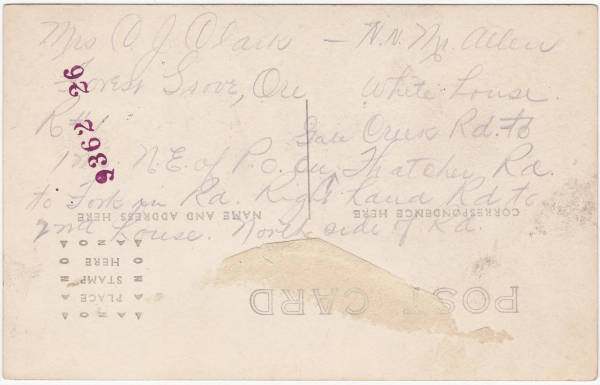 Mrs O. J. Clark — N. N. Mr. Allen
Forest Grove, Ore White house.
R#1 Gale Creek Rd. to
1 mi. N.E. of P.O. on Thatcher Rd.
to Fork in Rd. Right hand Rd to
2nd house. North side of Rd.
2362 26
NAME AND ADDRESS HERE
CORRESPONDENCE HERE
POST CARD
AZO
PLACE
STAMP
HERE
AZO